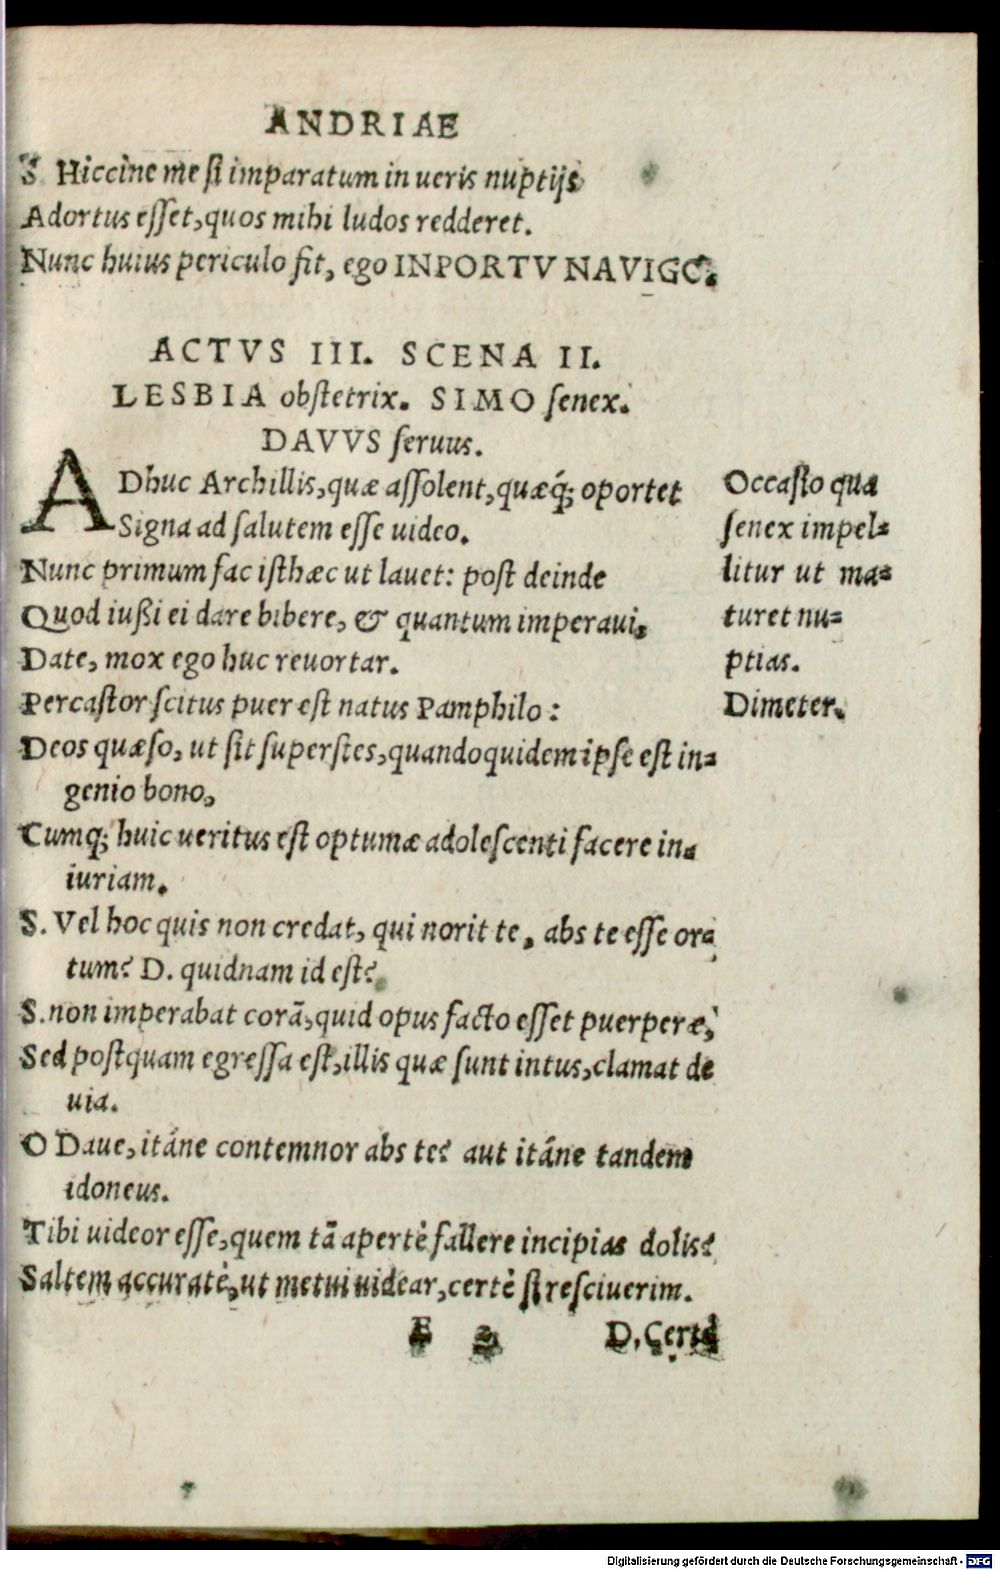 ANDRIAE
S Hiccine me si imparatum in ueris nuptijs
Adortus esset, quos mihi ludos redderet.
Nunc huius periculo fit, ego INPORTV NAVIGO.
ACTVS III. SCENA II.
LESBIA obstetrix. SIMO senex.
DAVVS seruus.
ADhuc Archillis, quæ assolent, quæq́; oportet
Signa ad salutem esse uideo.
Nunc primum fac isthæc ut lauet: post deinde
Quod iußi ei dare bibere, & quantum imperaui,
Date, mox ego huc reuortar.
Percastor scitus puer est natus Pamphilo:
Deos quæso, ut sit superstes, quandoquidem ipse est in-
genio bono,
Cumq; huic ueritus est optumæ adolescenti facere in-
iuriam.
S. Vel hoc quis non credat, qui norit te, abs te esse or-
tum? D. quidnam id est?
S. non imperabat corā, quid opus facto esset puerperæ,
Sed postquam egressa est, illis quæ sunt intus, clamat de
uia.
O Daue, itáne contemnor abs te? aut itáne tandem
idoneus.
Tibi uideor esse, quem tā apertè fallere incipias dolis?
Saltem accuratè, ut metui uidear, certè si resciuerim.
E 2 D. Certè
Occasio qua
senex impel-
litur ut ma-
turet nu-
ptias.
Dimeter.
Digitalisierung gefördert durch die Deutsche Forschungsgemeinschaft - DFG